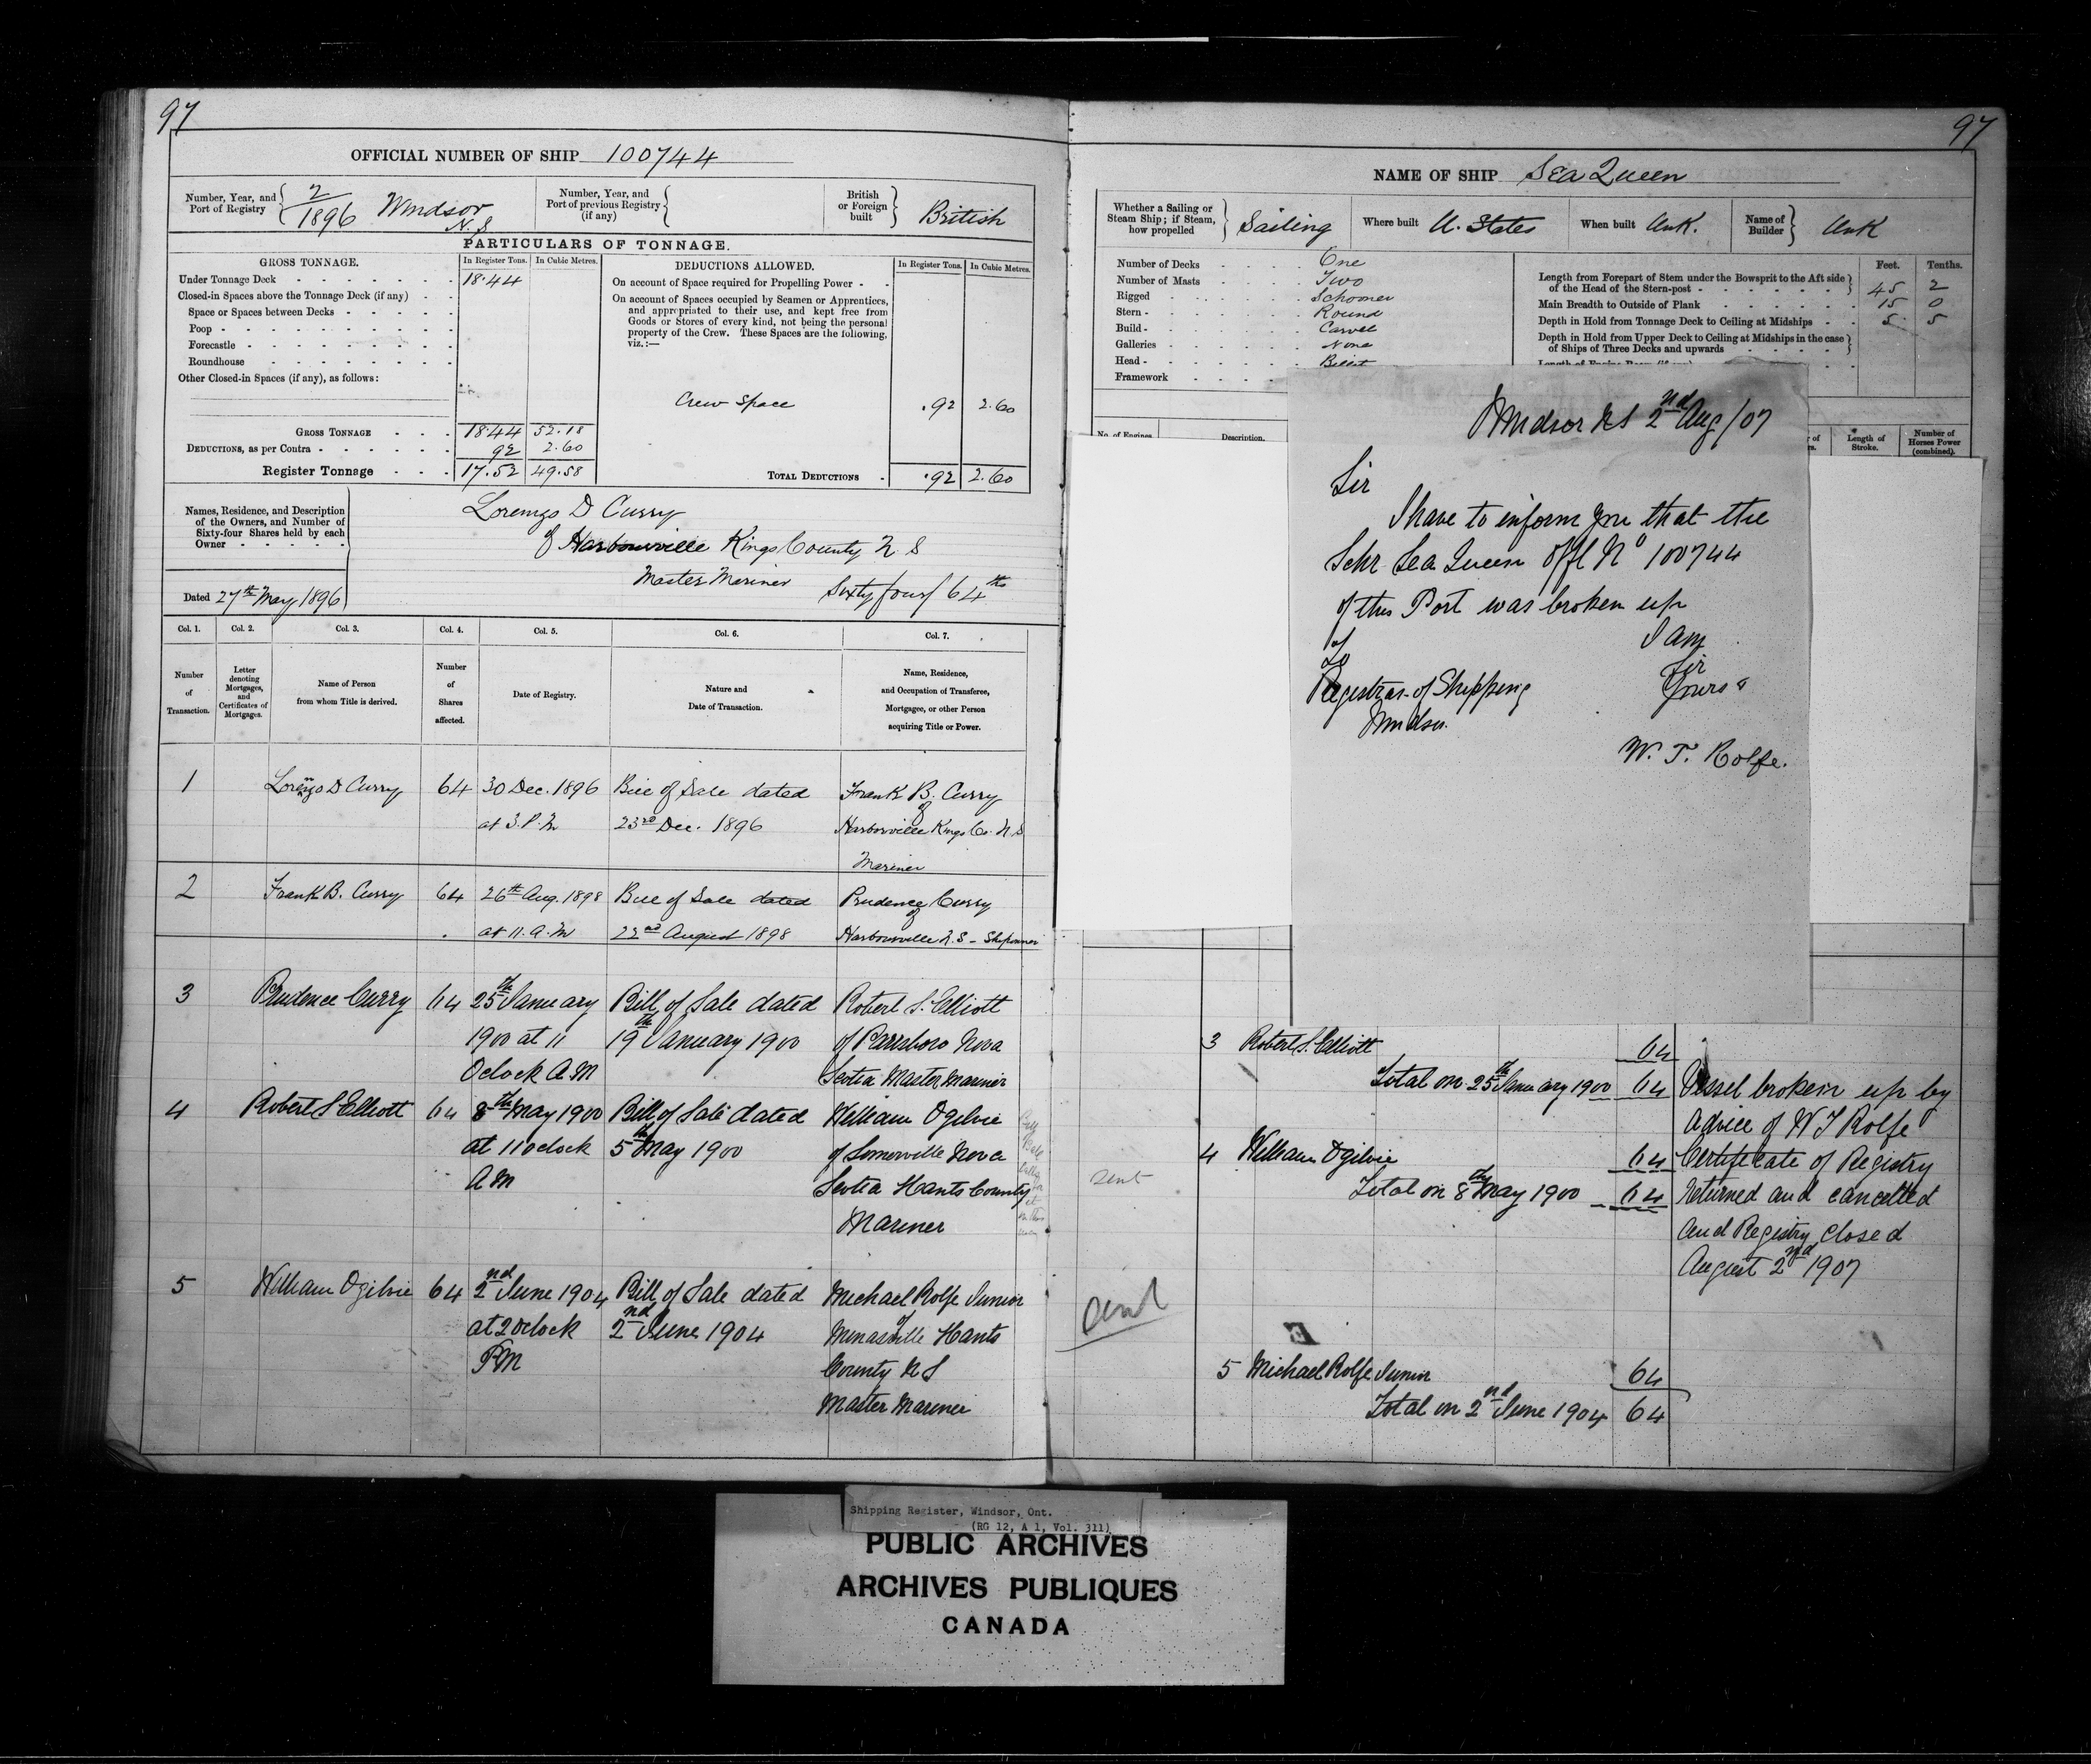 97
OFFICIAL NUMBER OF SHIP 100744
Number, Year, and Port of Registry 2/1896 Windsor N.S
Number, Year, and Port of previous Registry (if any)
British or Foreign built British
PARTICULARS OF TONNAGE.
GROSS TONNAGE. In Register Tons. In Cubic Metres.
Under Tonnage Deck 18.44
Closed-in Spaces above the Tonnage Deck (if any)
Space or Spaces between Decks
Poop
Forecastle
Roundhouse
Other Closed-in Spaces (if any), as follows:
GROSS TONNAGE 18.44 52.18
DEDUCTIONS, as per Contra 92 2.60
Register Tonnage 17.52 49.58
DEDUCTIONS ALLOWED. In Register Tons. In Cubic Metres.
On account of Space required for Propelling Power
On account of Spaces occupied by Seamen or Apprentices,
and appropriated to their use, and kept free from
Goods or Stores of every kind, not being the personal
property of the Crew. These Spaces are the following,
viz.:—
Crew Space .92 2.60
TOTAL DEDUCTIONS .92 2.60
Names, Residence, and Description
of the Owners, and Number of
Sixty-four Shares held by each
Owner
Dated 27th May 1896
Lorenzo D Curry
of Harbourville Kings County N S
Master Mariner Sixty four/64ths
Col. 1. Col. 2. Col. 3. Col. 4. Col. 5. Col. 6. Col. 7.
Number of Transaction.
Letter denoting Mortgages, and Certificates of Mortgages.
Name of Person from whom Title is derived.
Number of Shares affected.
Date of Registry.
Nature and Date of Transaction.
Name, Residence, and Occupation of Transferee, Mortgagee, or other Person acquiring Title or Power.
1 Lorenzo D Curry 64 30 Dec. 1896 Bill of Sale dated Frank B. Curry
of
at 3. P. M 23rd Dec. 1896 Harborville Kings Co. N S
Mariner
2 Frank B. Curry 64 26th Aug. 1898 Bill of Sale dated Prudence Curry
of
at 11. A. M 22nd August 1898 Harbourville N.S - Shipowner
3 Prudence Curry 64 25th January Bill of Sale dated Robert S. Elliott
1900 at 11 19th January 1900 of Parrsboro Nova
Oclock A M Scotia Master Mariner
4 Robert S Elliott 64 8th May 1900 Bill of Sale dated William Ogilvie
at 11 oclock 5th May 1900 of Somerville Nova
A M Scotia Hants County
Mariner
5 William Ogilvie 64 2nd June 1904 Bill of Sale dated Michael Rolfe Junior
of
at 2 Oclock 2nd June 1904 Minasville Hants
P M County N S
Master Mariner
97
NAME OF SHIP Sea Queen
Whether a Sailing or Steam Ship; if Steam, how propelled Sailing
Where built U. States
When built Unk.
Name of Builder Unk
Number of Decks One
Number of Masts Two
Rigged Schooner
Stern Round
Build Carvel
Galleries None
Head Billet
Framework
Feet. Tenths.
Length from Forepart of Stem under the Bowsprit to the Aft side
of the Head of the Stern-post 45 2
Main Breadth to Outside of Plank 15 0
Depth in Hold from Tonnage Deck to Ceiling at Midships 5 5
Depth in Hold from Upper Deck to Ceiling at Midships in the case
of Ships of Three Decks and upwards
No. of Engines Description. Length of Stroke. Number of Horses Power (combined).
Windsor NS 2nd Aug/07
Sir
I have to inform you that the
Schr Sea Queen Offl No 100744
of this Port was broken up
I am
To Sir
Registrar of Shipping Yours
Windsor
W. T. Rolfe.
3 Robert S. Elliott 64
Total on 25th January 1900 64
sent
4 William Ogilvie 64
Total on 8th May 1900 64
Vessel broken up by
advice of W T Rolfe
Certificate of Registry
returned and cancelled
and Registry closed
August 2nd 1907
5 Michael Rolfe Junior 64
Total on 2nd June 1904 64
Shipping Register, Windsor, Ont.
(RG 12, A 1, Vol. 311)
PUBLIC ARCHIVES
ARCHIVES PUBLIQUES
CANADA